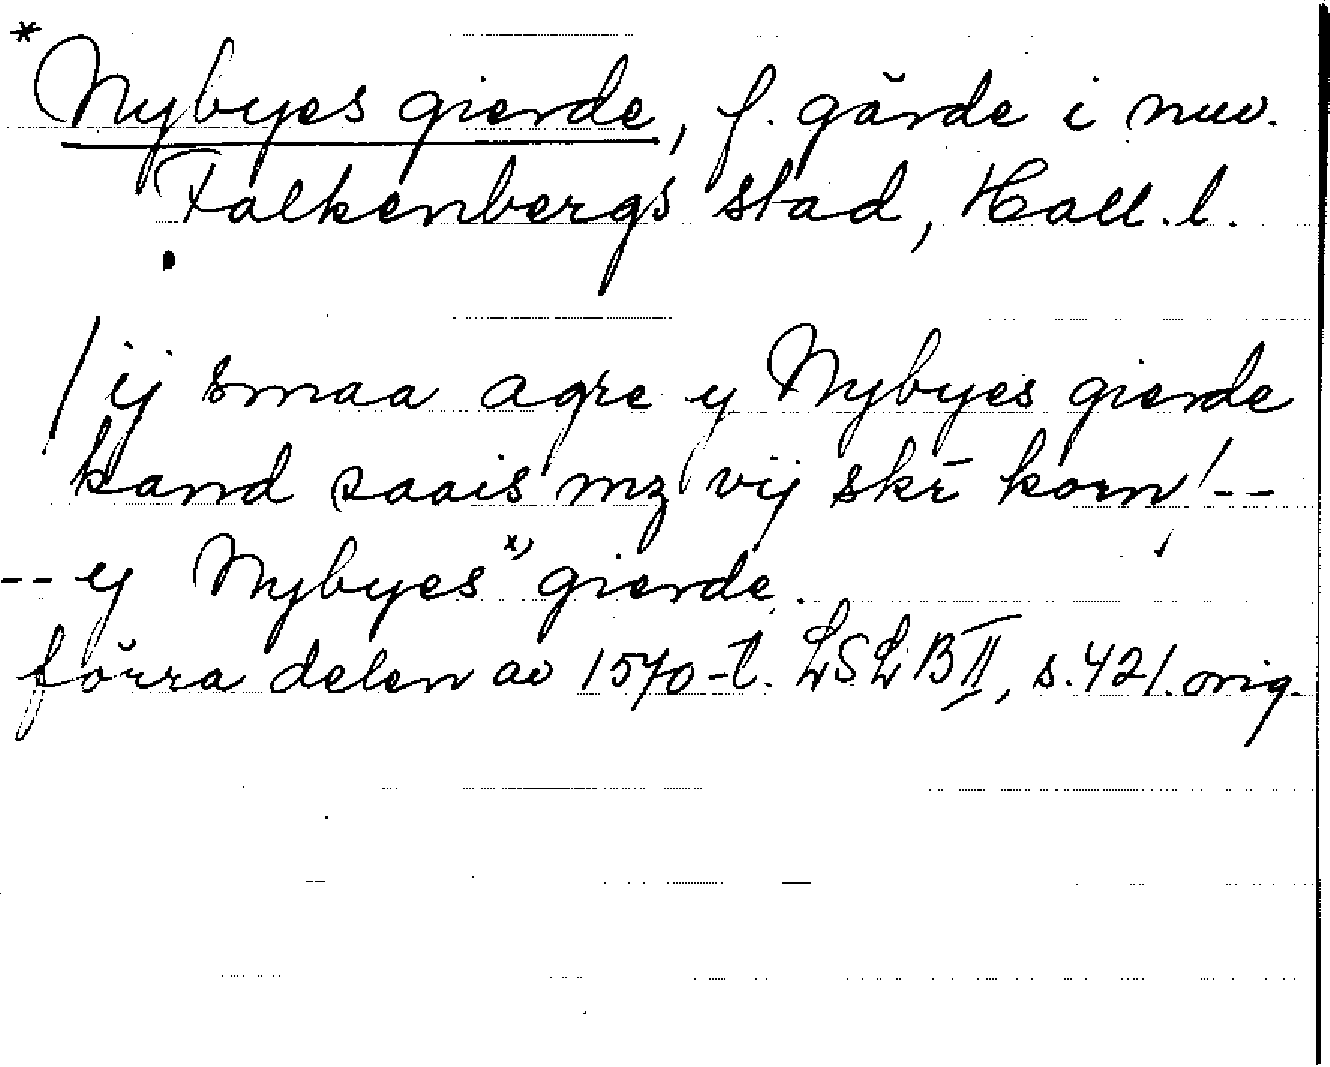 * Nybyes gierde, f. gärde i nuv.
Falkenbergs stad, Hall. l.
/ ij smaa agre y Nybyes gierde
kand saais mz vij skr̄ korn/--
-- y Nybyes x) gierde.
förra delen av 1570-t. LSLB II, s. 421. orig.